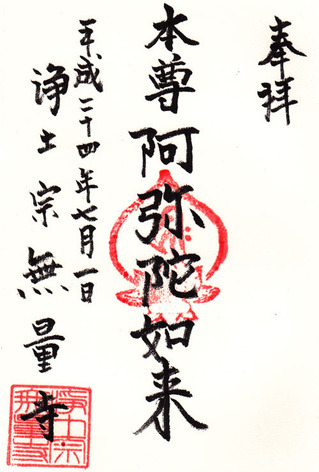 奉拝
本尊阿弥陀如来
平成二十四年七月一日
浄土宗無量寺